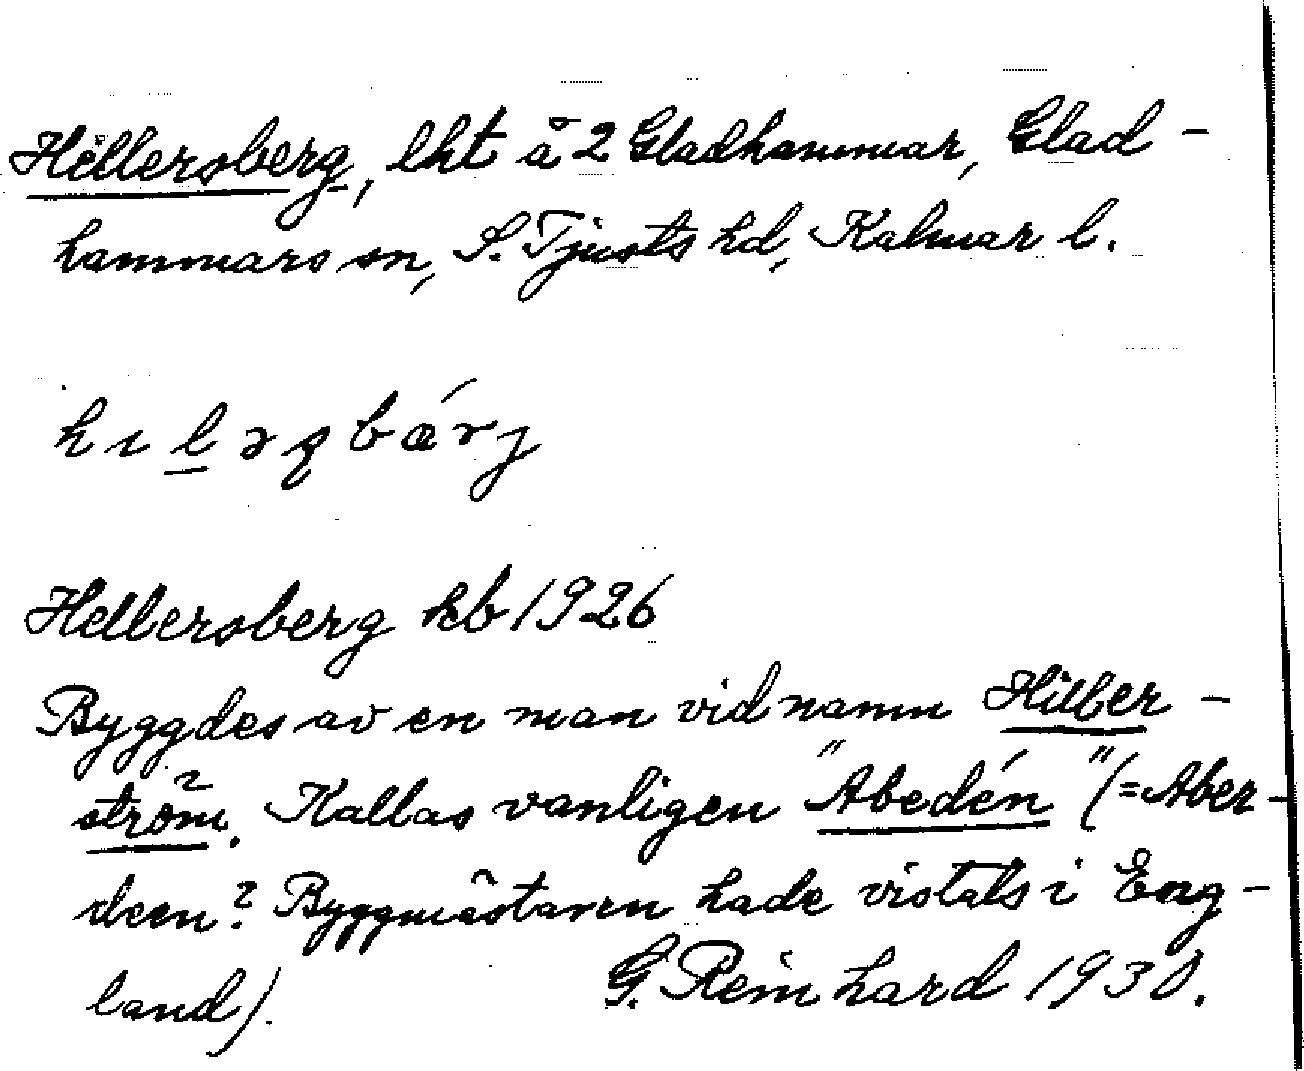 Hillersberg, lht å 2 Gladhammar, Glad-
hammars sn, S. Tjusts hd, Kalmar l.
hıləʂbǽrj
Hellersberg kb 1926
Byggdes av en man vid namn Hiller-
ström. Kallas vanligen "Abedén" (=Aber-
deen? Byggmästaren hade vistats i Eng-
land).
G. Reinhard 1930.